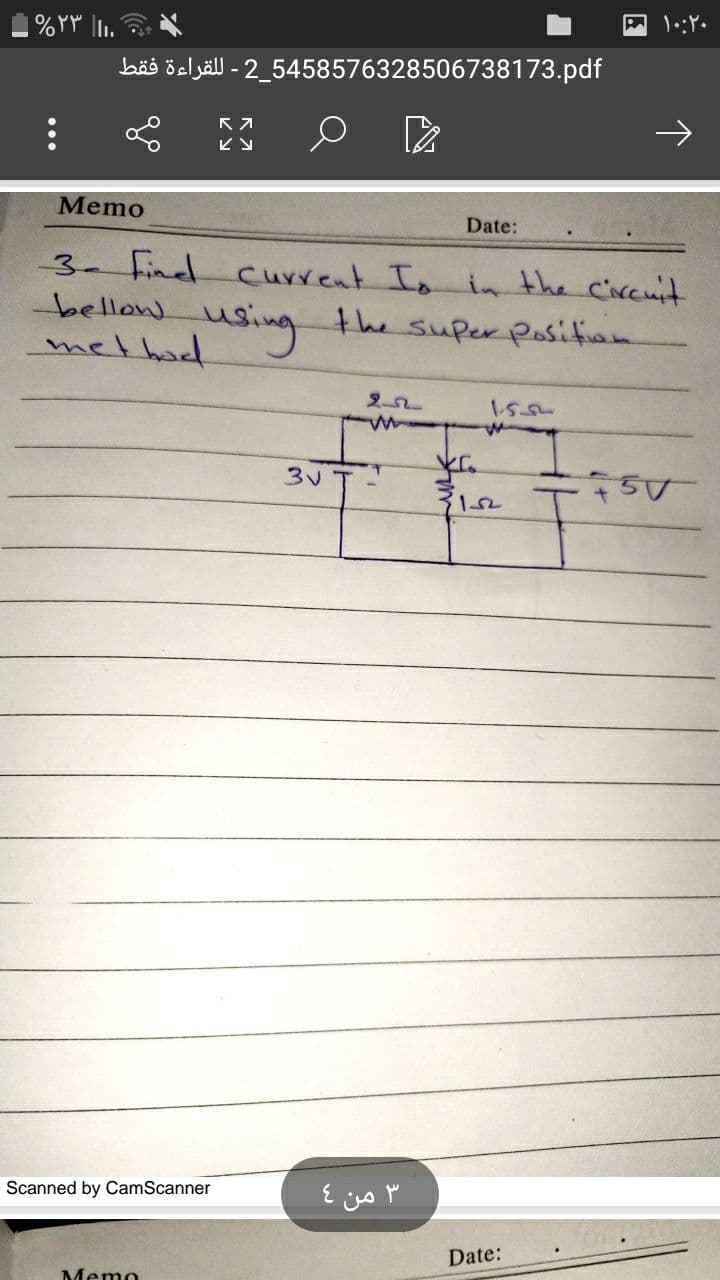 %٢٣ ١٠:٢٠
2_5458576328506738173.pdf - للقراءة فقط
Memo
Date: . .
3- Find current Io in the circuit
bellow using the super position
method
2Ω 1.5Ω
3V + - Io 1Ω - + 5V
Scanned by CamScanner
٣ من ٤
Date: . .
Memo